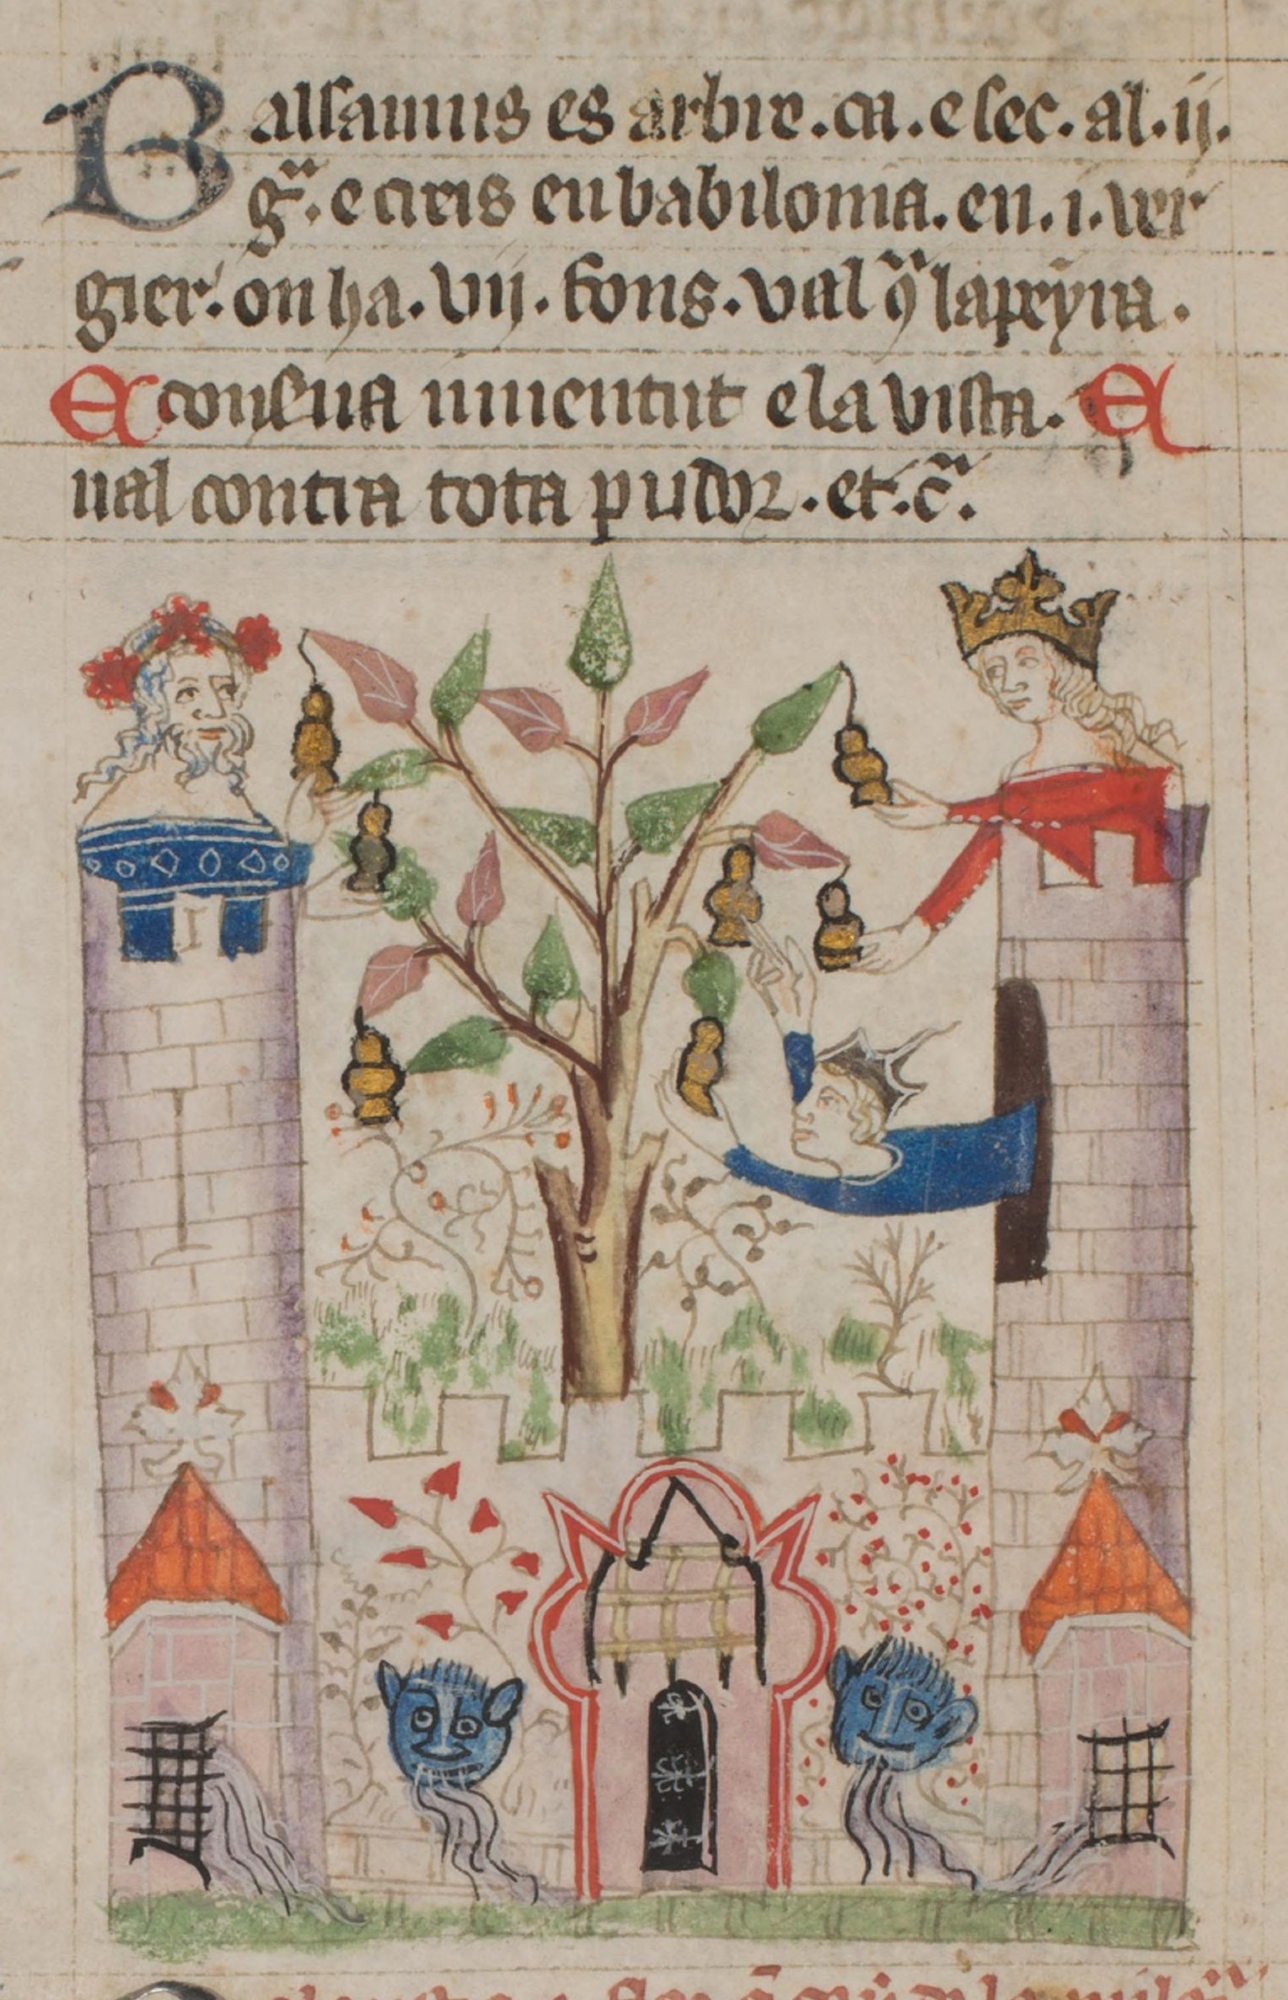 Balsamus es arbre. ca. e sec. al. ij.
gᵃ. e creis en babilonia. en. i. ver
gier. on ha. vij. fons. val ꝯᵃ la peyra.
E conserva iuventut e la vista. E
val contra tota pudor. et. cᵃ.